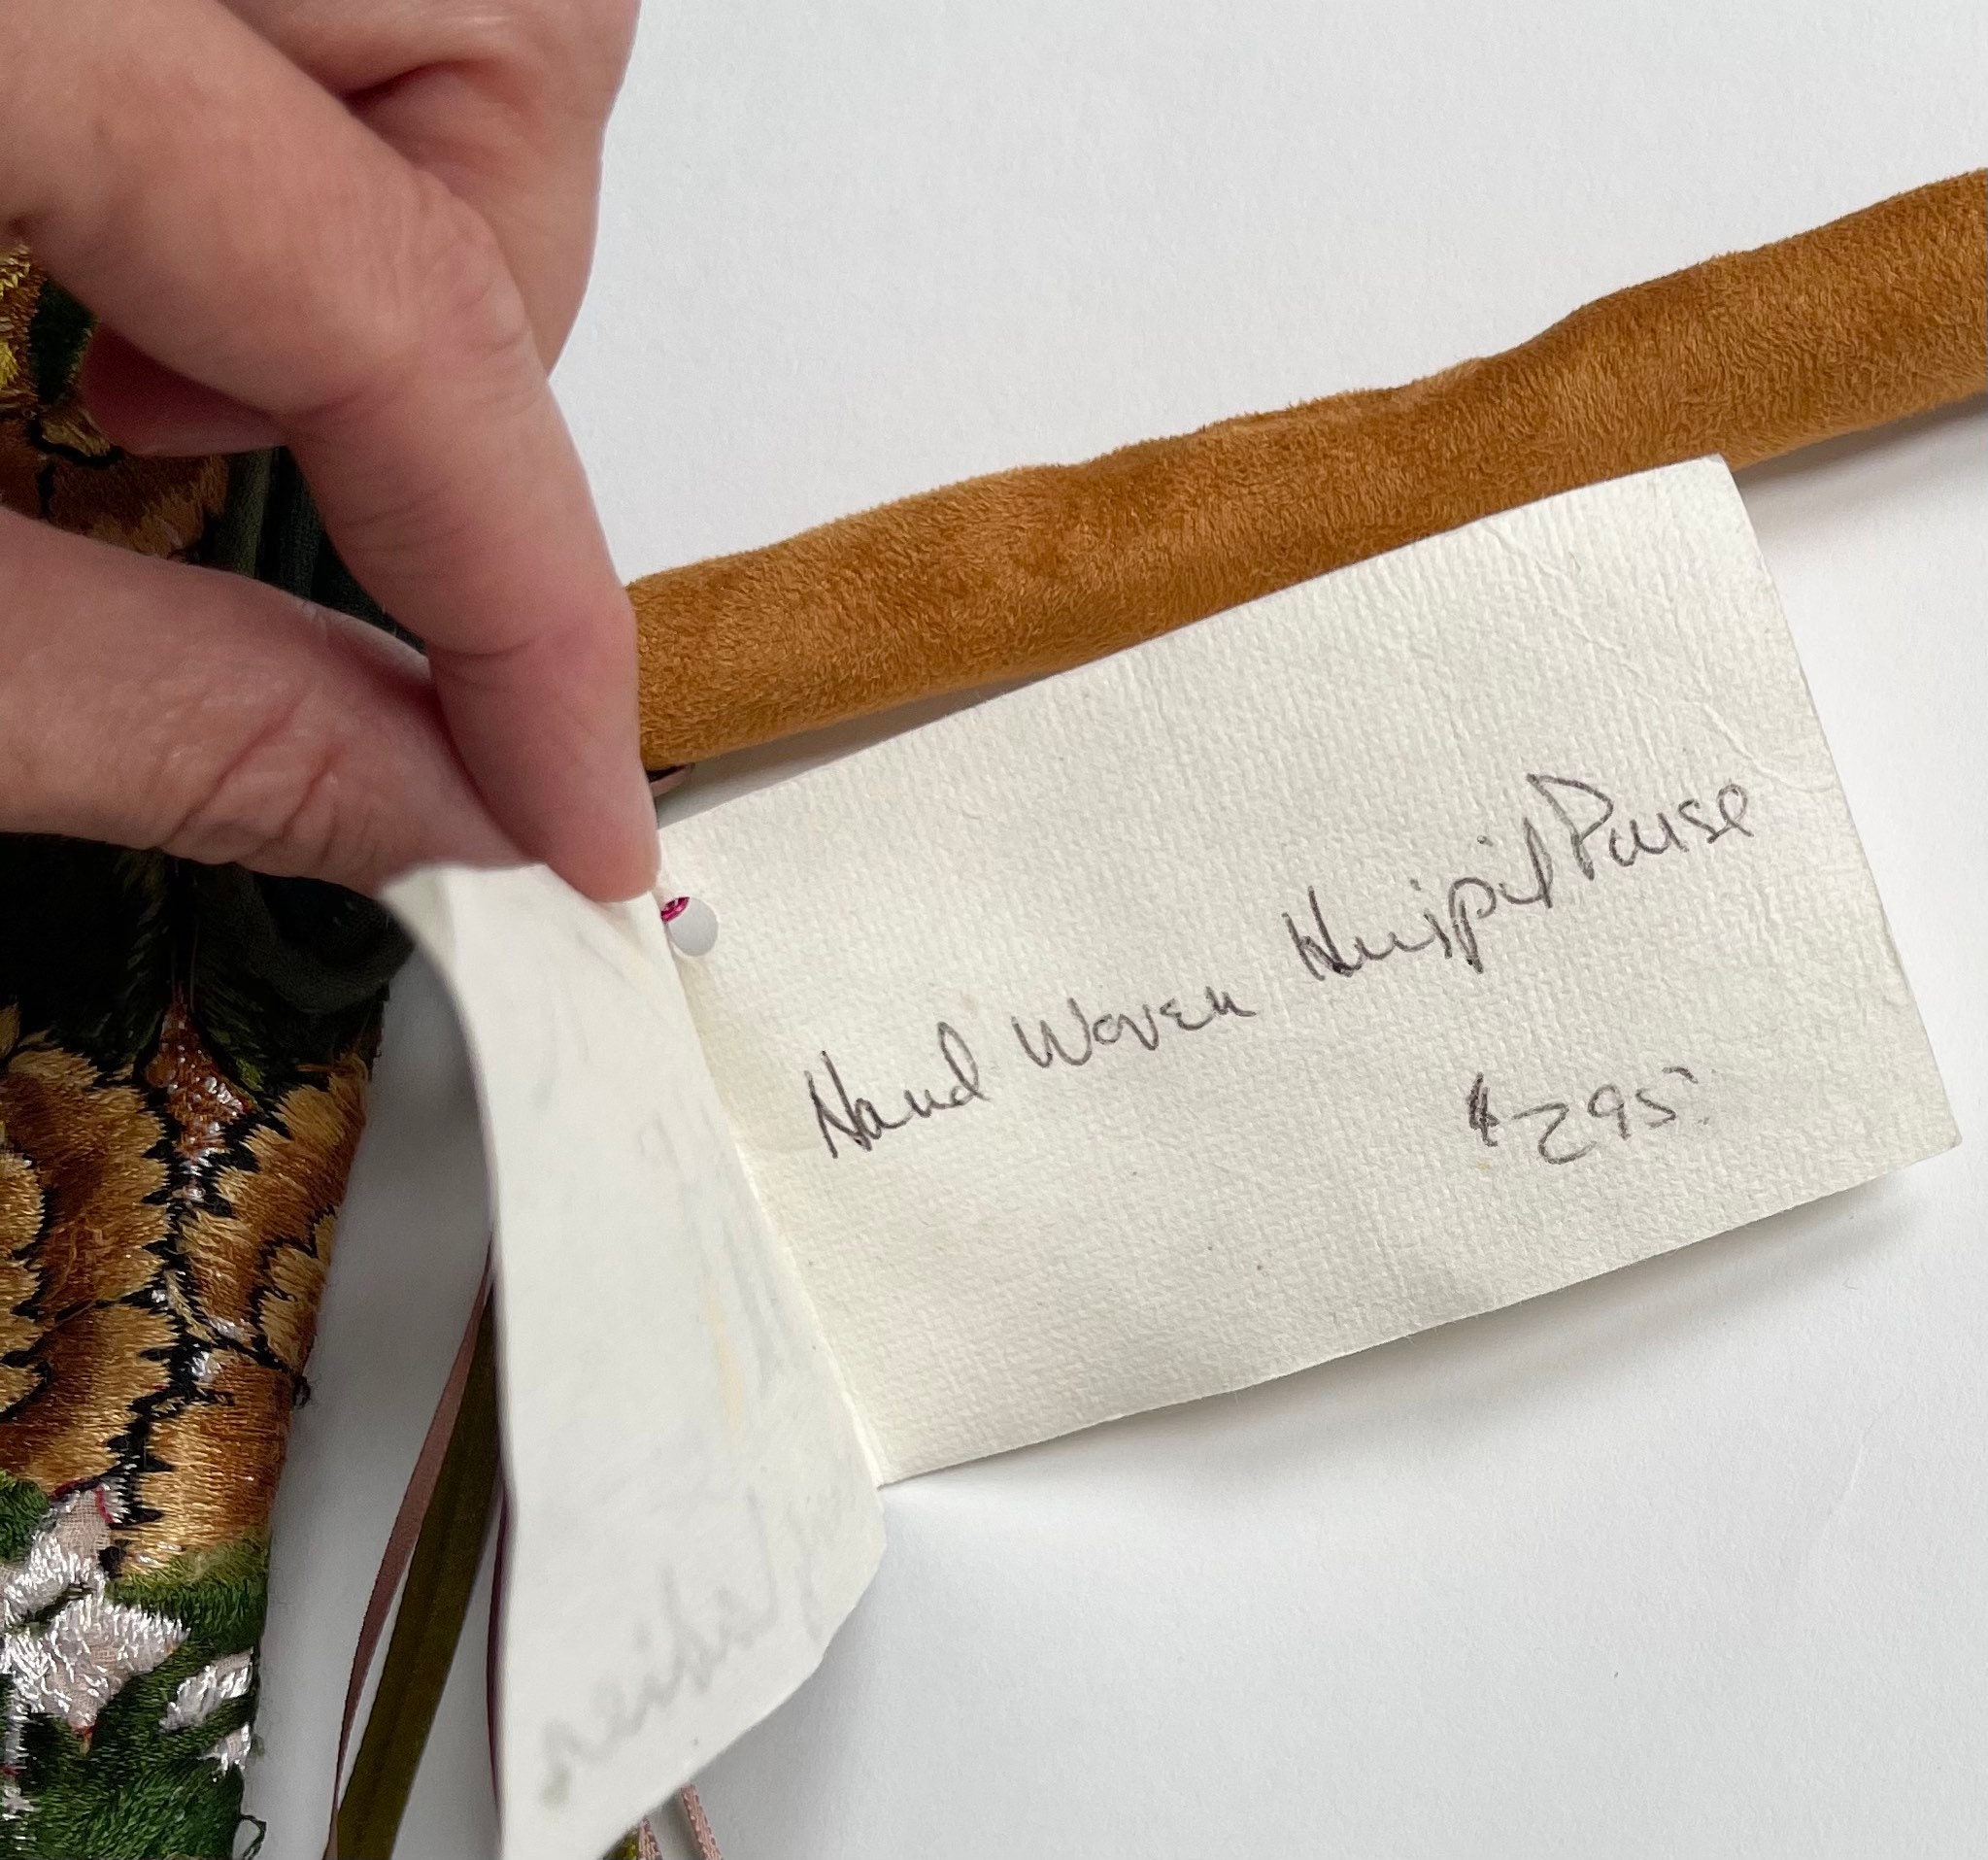 Hand Woven Huipil Purse
$295.